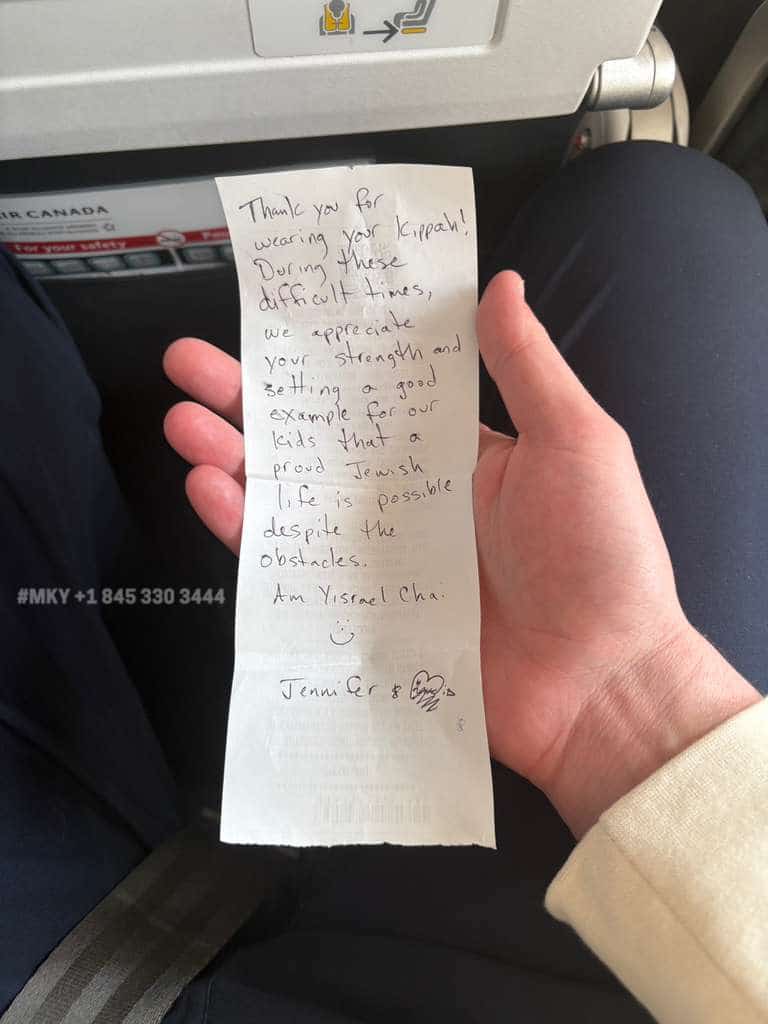 IR CANADA
For your safety
Thank you for
wearing your Kippah!
During these
difficult times,
we appreciate
your strength and
setting a good
example for our
kids that a
proud Jewish
life is possible
despite the
obstacles.
Am Yisrael Chai
Jennifer &
#MKY +1 845 330 3444